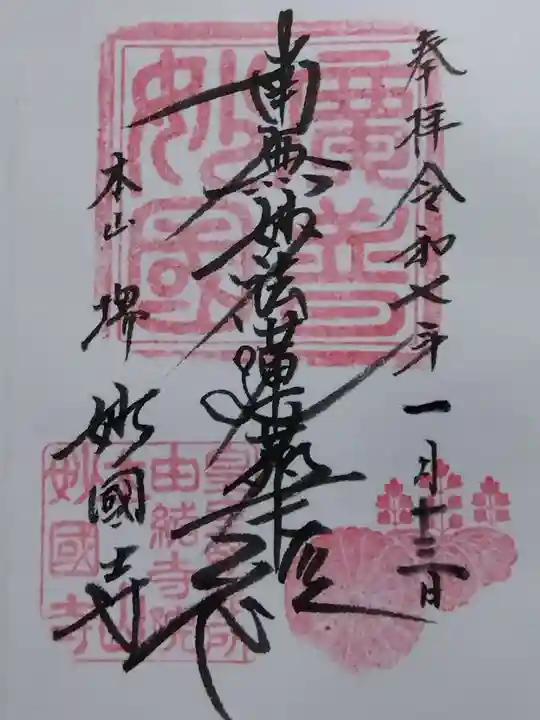 奉拝令和七年一月十三日
南無妙法蓮華経
本山 堺 妙國寺
廣普
妙國
由緒寺院
妙國寺